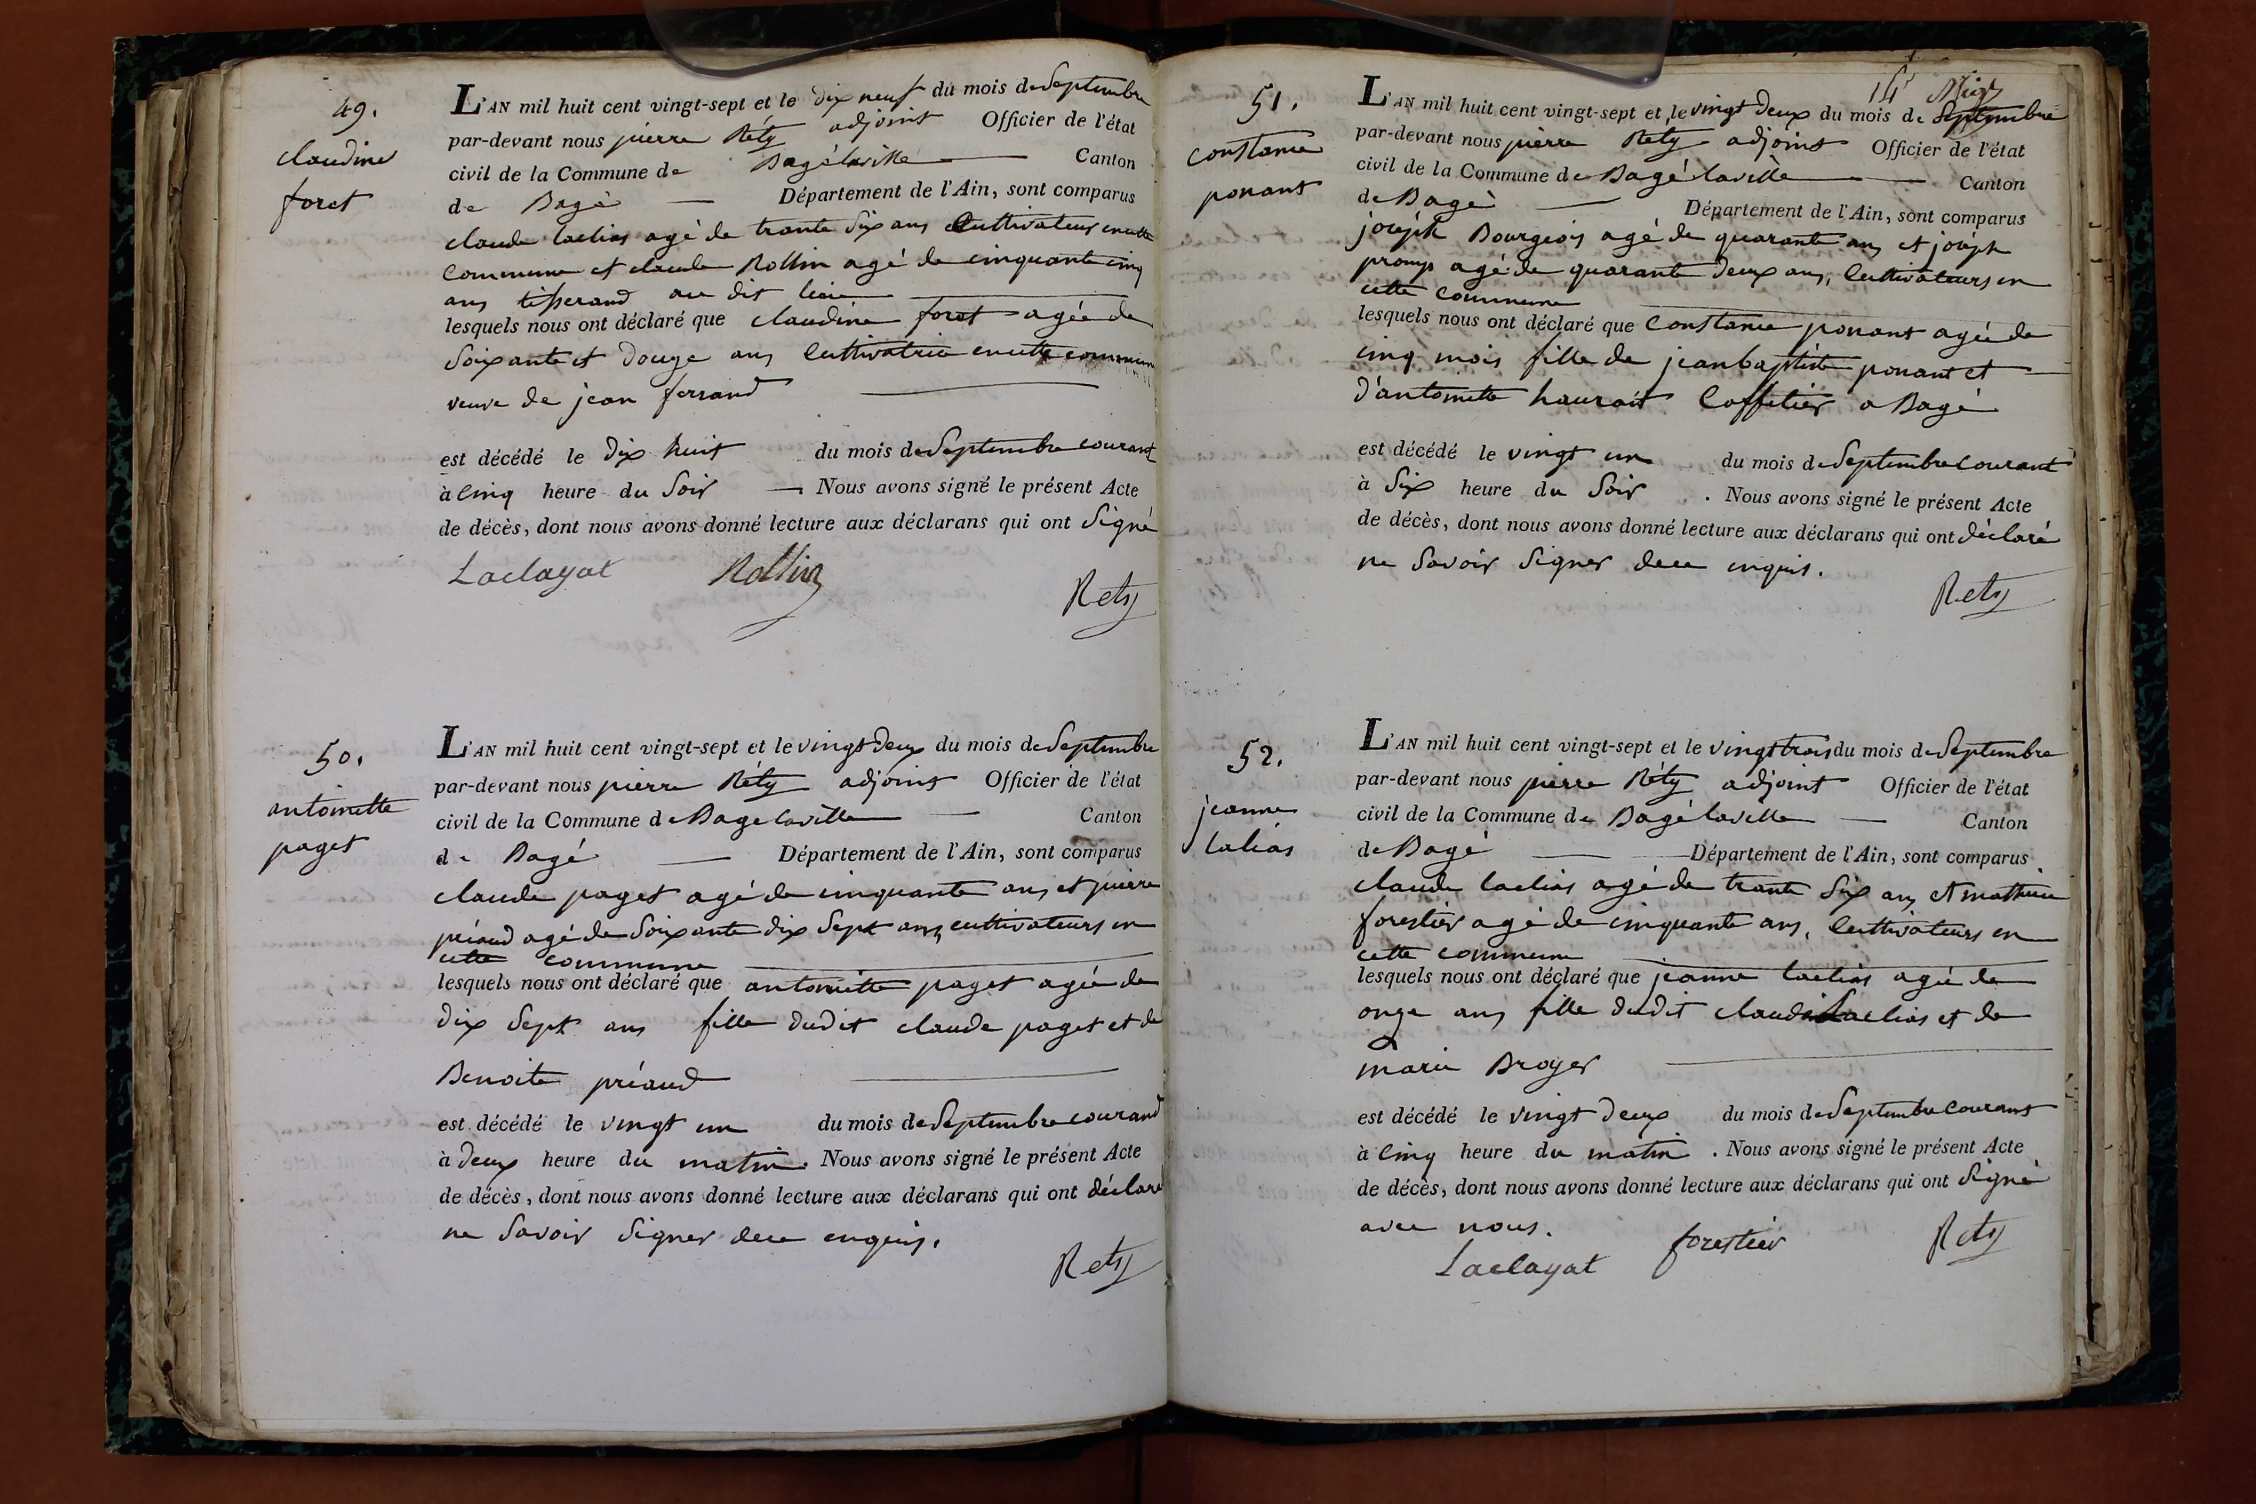 49.
claudine
foret
L'AN mil huit cent vingt-sept et le dix neuf du mois de Septembre
par-devant nous pierre Réty adjoint Officier de l'état
civil de la Commune de Bagélaville Canton
de Bagé Département de l'Ain, sont comparus
claude laclias agé de trante Six ans Cultivateur en cette
commune et claude Rollin agé de cinquante cinq
ans tisserand au dit lieu
lesquels nous ont déclaré que claudine foret agée de
Soixante et douze ans Cultivatrice en cette commune
veuve de jean ferrand
est décédé le dix huit du mois de Septembre courant
à Cinq heure du Soir Nous avons signé le présent Acte
de décès, dont nous avons donné lecture aux déclarans qui ont Signé
Laclayat Rollin
Rety
50.
antoinette
paget
L'AN mil huit cent vingt-sept et le vingt deux du mois de Septembre
par-devant nous pierre Réty adjoint Officier de l'état
civil de la Commune de Bagelaville Canton
de Bagé Département de l'Ain, sont comparus
claude paget agé de cinquante ans et pierre
préaud agé de Soixante dix Sept ans, cultivateurs en
cette commune
lesquels nous ont déclaré que antoinette paget agée de
dix Sept ans fille dudit claude paget et de
Benoite préaud
est décédé le vingt un du mois de Septembre courand
à deux heure du matin. Nous avons signé le présent Acte
de décès, dont nous avons donné lecture aux déclarans qui ont déclaré
ne Savoir Signer dece enquis.
Rety
14
51.
constance
ponant
L'AN mil huit cent vingt-sept et le vingt deux du mois de Septembre
par-devant nous pierre Réty adjoint Officier de l'état
civil de la Commune de Bagélaville Canton
de Bagé Département de l'Ain, sont comparus
joseph Bourgeois agé de quarante ans et joseph
promps agé de quarante deux ans, Cultivateurs en
cette commune
lesquels nous ont déclaré que Constance ponant agée de
cinq mois fille de jean baptiste ponant et
d'antoinette haurait Caffetier a Bagé
est décédé le vingt un du mois de Septembre courant
à Six heure du Soir . Nous avons signé le présent Acte
de décès, dont nous avons donné lecture aux déclarans qui ont déclaré
ne Savoir Signer dece enquis.
Rety
52.
jeanne
lalias
L'AN mil huit cent vingt-sept et le vingt trois du mois de Septembre
par-devant nous pierre Réty adjoint Officier de l'état
civil de la Commune de Bagélaville Canton
de Bagé Département de l'Ain, sont comparus
claude laclias agé de trante Six ans Et mathieu
forestier agé de cinquante ans, Cultivateurs en
cette commune
lesquels nous ont déclaré que jeanne laclias agée de
onze ans fille dudit claude Laclias et de
marie Broyer
est décédé le vingt deux du mois de Septembre courant
à Cinq heure du matin . Nous avons signé le présent Acte
de décès, dont nous avons donné lecture aux déclarans qui ont Signé
avec nous.
Laclayat forestier Rety